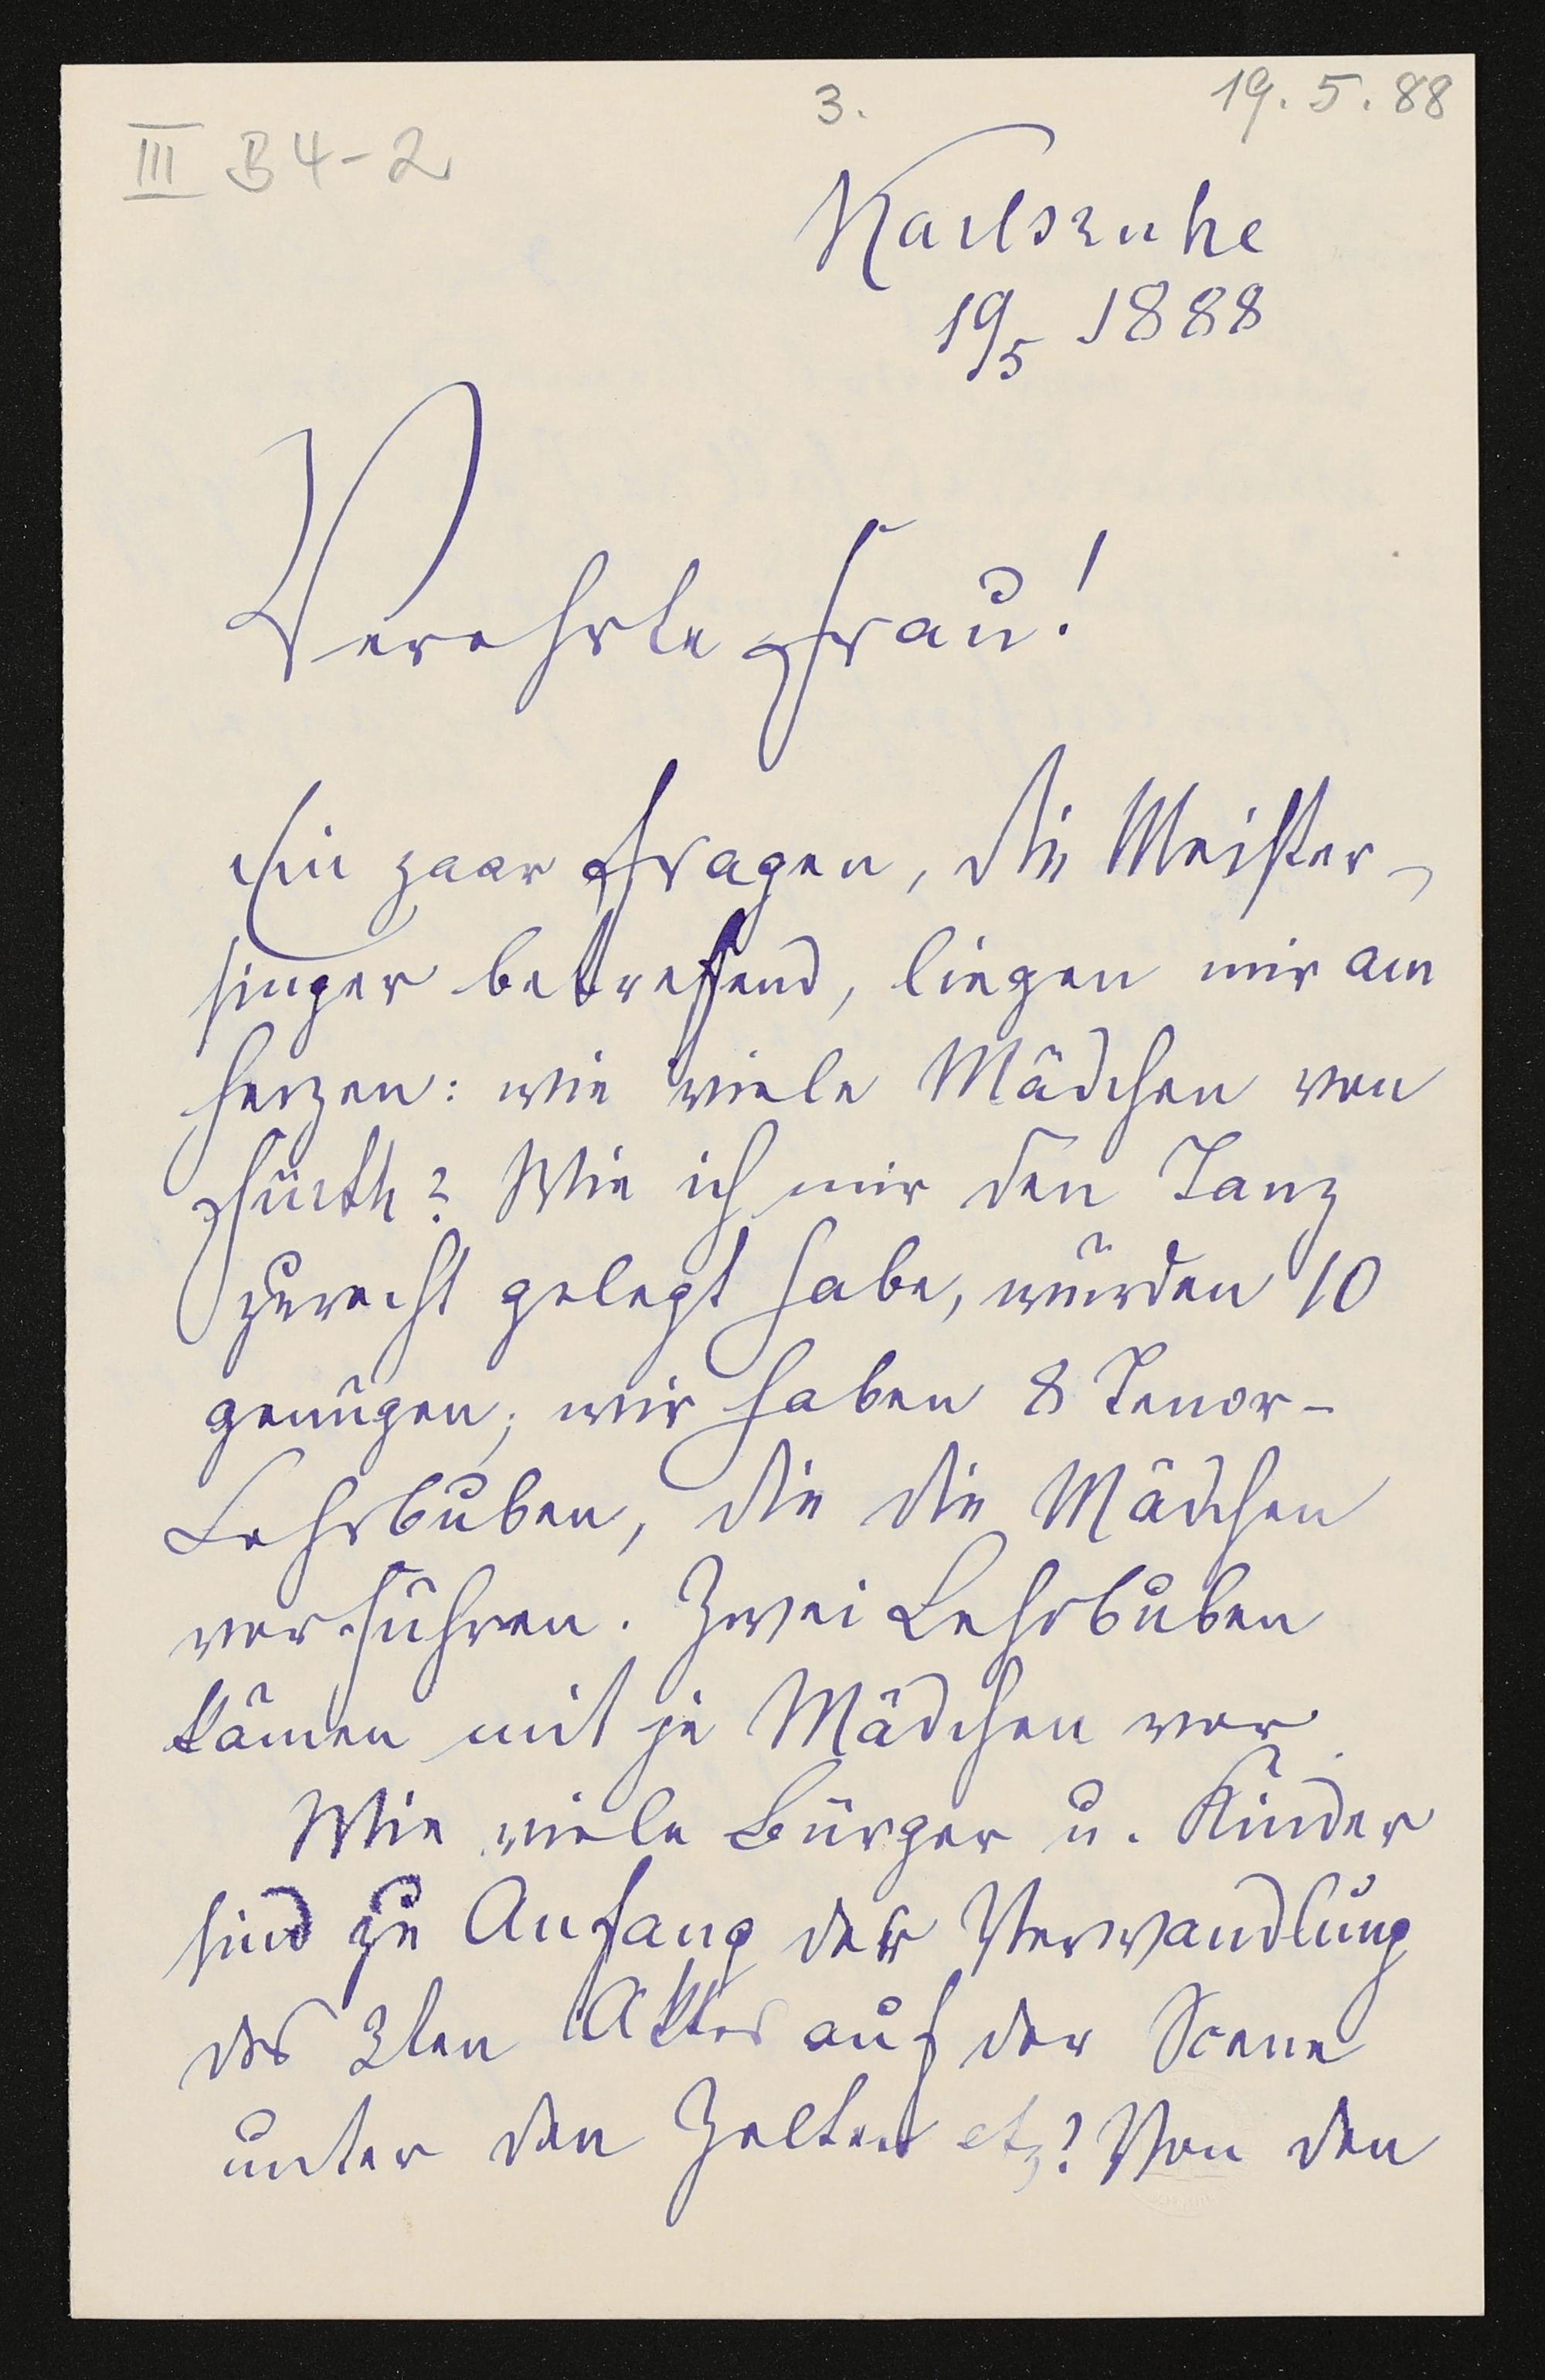 III B 4-2
3.
19.5.88
Karlsruhe
19/5 1888
Verehrte Frau!
Ein paar Fragen, die Meister-
singer betreffend, liegen mir am
Herzen: wie viele Mädchen von
Fürth? Wie ich mir den Tanz
zurecht gelegt habe, würden 10
genügen; wir haben 8 Tenor-
Lehrbuben, die die Mädchen
verführen. Zwei Lehrbuben
kämen mit je Mädchen vor.
Wie viele Bürger u. Kinder
sind zu Anfang der Verwandlung
des 3ten Aktes auf der Scene
unter den Zelten etz? Von den